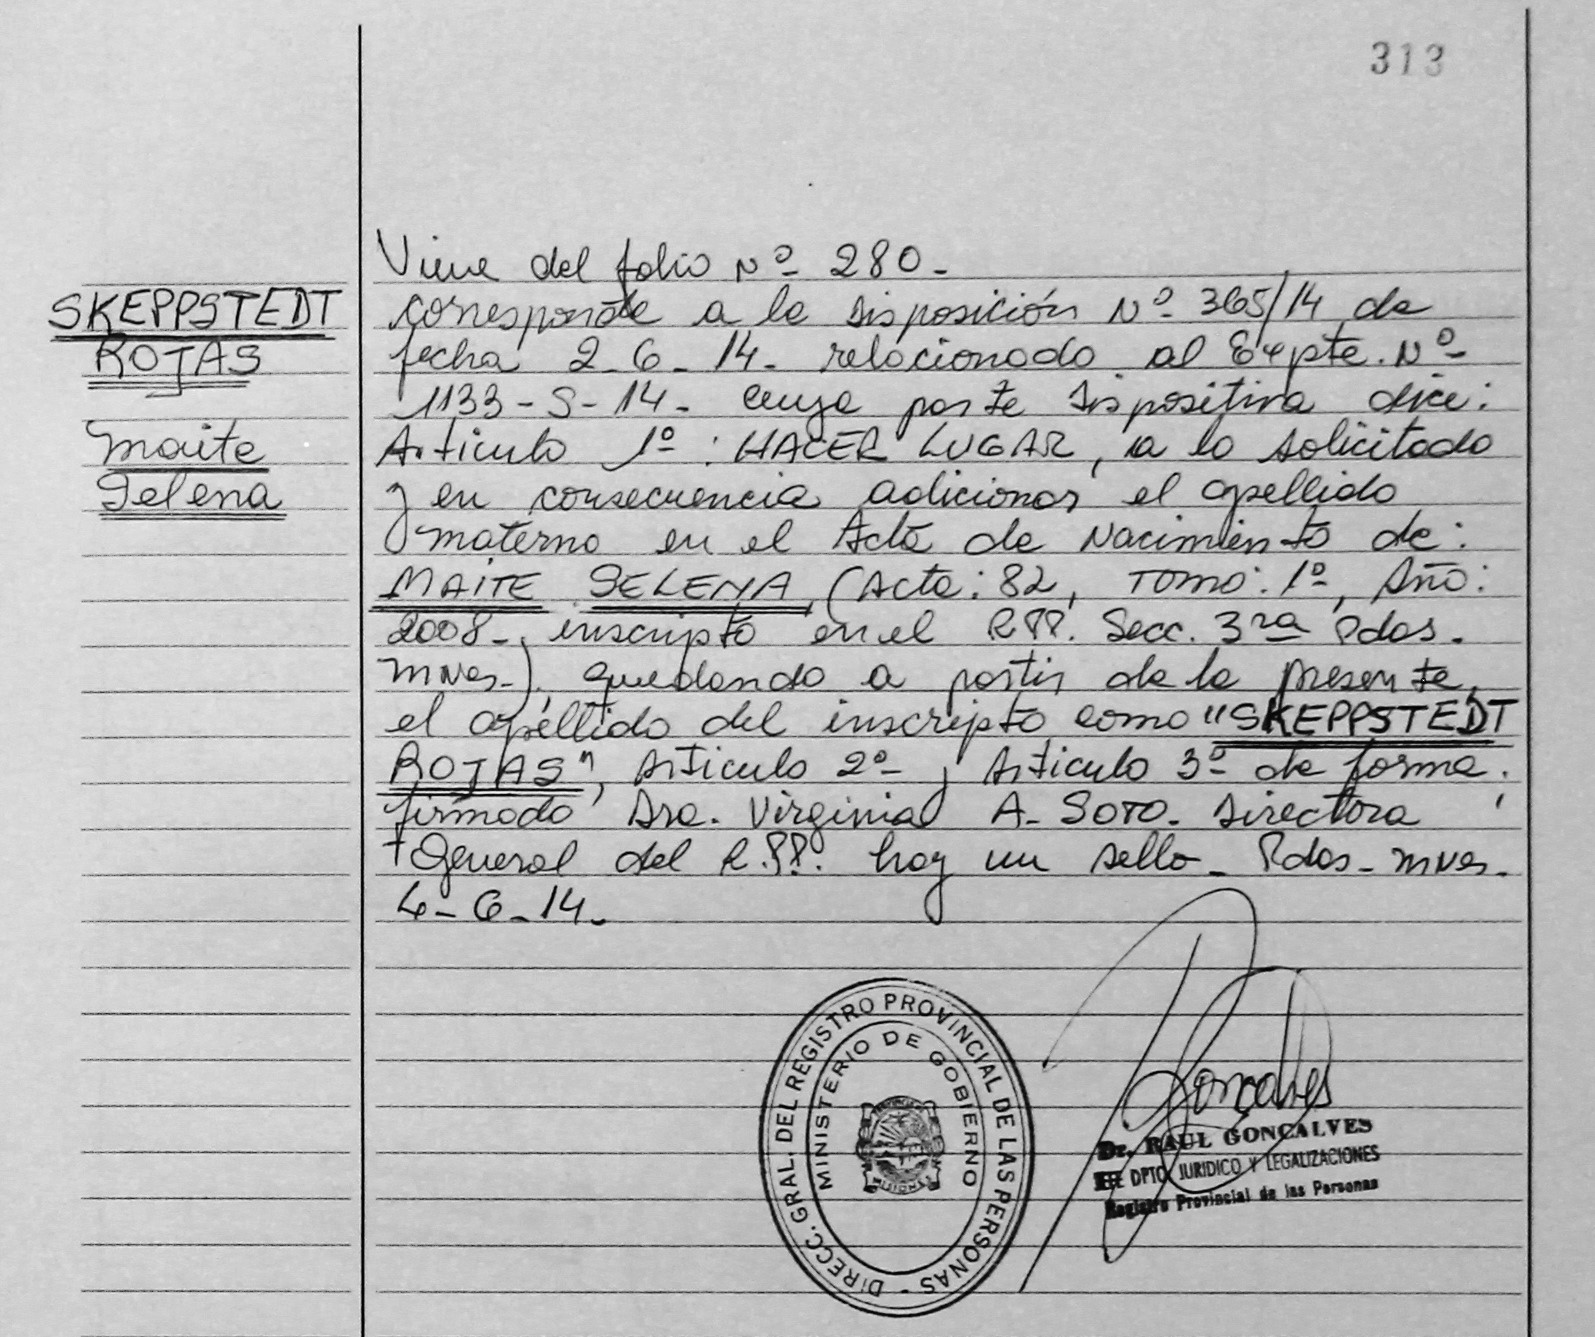 313
Viene del folio Nº 280-
SKEPPSTEDT
ROJAS
Maite
Selena
corresponde a la Disposición Nº 365/14 de
fecha 2-6-14- relacionado al Expte. Nº
1133-S-14- cuya parte Dispositiva dice:
Articulo 1º: HACER LUGAR, a lo solicitado
y en consecuencia adicionar el apellido
materno en el Acta de Nacimiento de:
MAITE SELENA, (Acta: 82, Tomo: 1º, Año:
2008-, inscripto en el R.P.P. Secc. 3ra Pdas.
Mnes.-), quedando a partir de la presente,
el apellido del inscripto como "SKEPPSTEDT
ROJAS", Articulo 2º y Articulo 3º de forma.
firmado Dra. Virginia A. SOTO. Directora
General del R.P.P. hay un sello- Pdas- Mnes-
4-6-14-
DIRECC. GRAL. DEL REGISTRO PROVINCIAL DE LAS PERSONAS -
MINISTERIO DE GOBIERNO
PROVINCIA
MISIONES
Goncalves
Dr. RAUL GONCALVES
JEFE DPTO. JURIDICO Y LEGALIZACIONES
Registro Provincial de las Personas